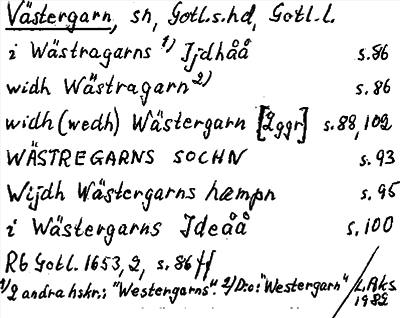 Västergarn, sn, Gotl.s.hd, Gotl.l.
i Wästragarns 1) Ijdhåå s.86
widh Wästragarn 2) s.86
widh (wedh) Wästergarn [2ggr] s.88, 102
WÄSTREGARNS SOCHN s.93
Wijdh Wästergarns hæmpn s.95
i Wästergarns Ideåå s.100
Rb Gotl. 1653, 2, s.86ff
1) 2 andra hskr.: "Westergarns". 2) D:o: "Westergarn"
L.Aks
1982